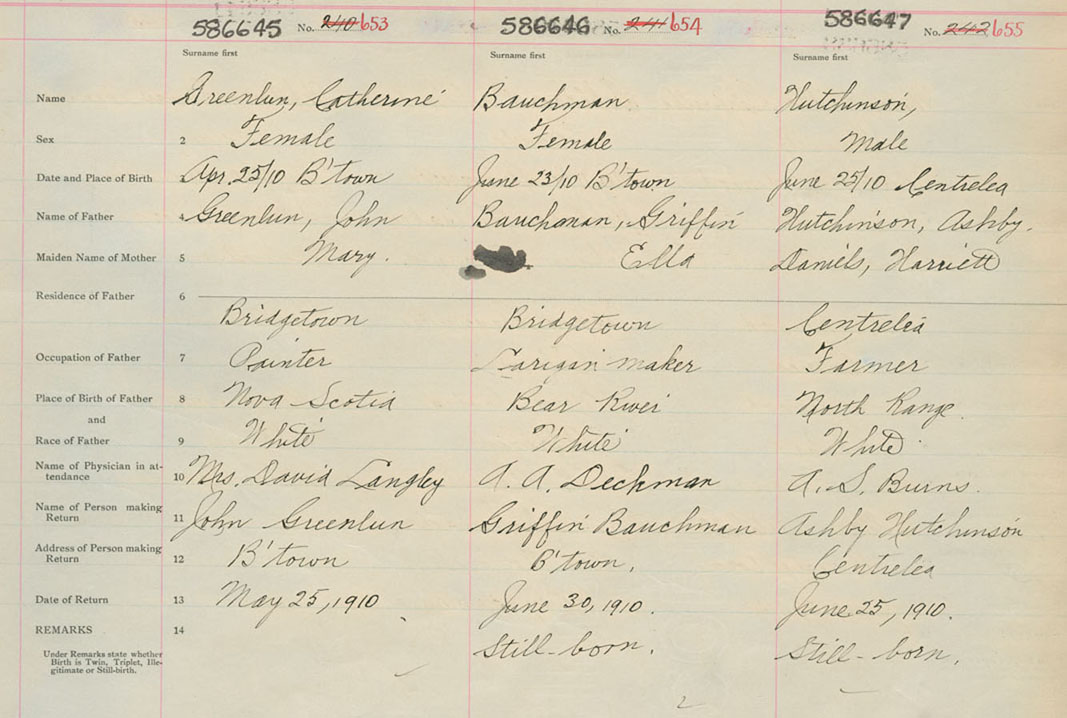 586645 No. 240 653 586646 No. 241 654 586647 No. 242 655
Surname first Surname first Surname first
Name Greenlun, Catherine Bauchman Hutchinson,
Sex 2 Female Female Male
Date and Place of Birth 3 Apr. 25/10 B'town June 23/10 B'town June 25/10 Centrelea
Name of Father 4 Greenlun, John Bauchman, Griffin Hutchinson, Ashby.
Maiden Name of Mother 5 Mary. Ella Daniels, Harriett
Residence of Father 6
Bridgetown Bridgetown Centrelea
Occupation of Father 7 Painter Larigan maker Farmer
Place of Birth of Father 8 Nova Scotia Bear River North Range.
and
Race of Father 9 White White White
Name of Physician in at-
tendance 10 Mrs. David Langley A. A. Dechman A. S. Burns.
Name of Person making
Return 11 John Greenlun Griffin Bauchman Ashby Hutchinson
Address of Person making
Return 12 B'town B'town. Centrelea
Date of Return 13 May 25, 1910 June 30, 1910. June 25, 1910.
REMARKS 14
Still-born. Still-born.
Under Remarks state whether
Birth is Twin, Triplet, Ille-
gitimate or Still-birth.